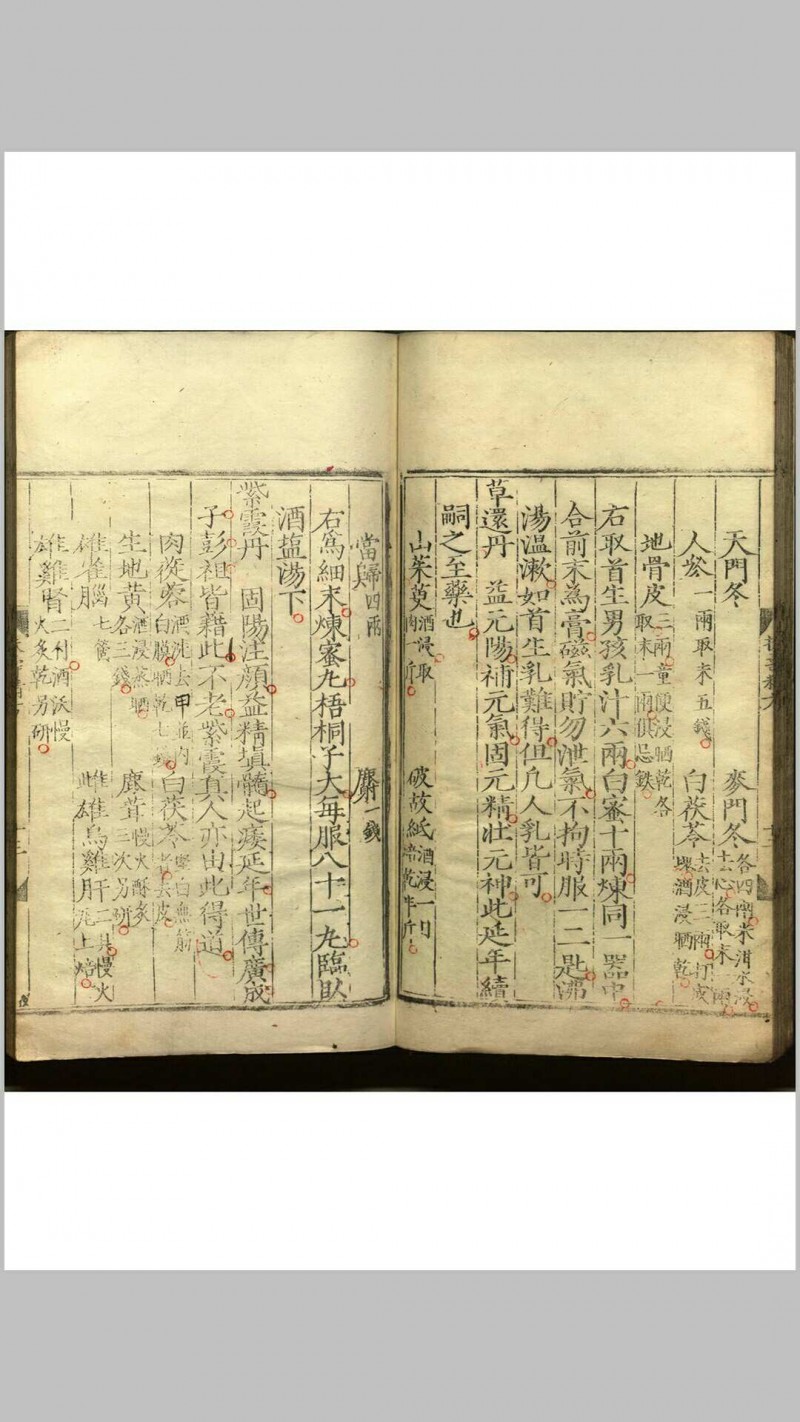 天門冬 麥門冬 各四兩米泔水浸去心各取末二兩
人參 一兩取末五錢 白茯苓 去皮三兩打成塊酒浸晒乾
地骨皮 三兩童便浸晒乾各取末一兩俱忌鉄
右取首生男孩乳汁六兩白蜜十兩煉同一器中
合前末為膏磁氣貯勿泄氣不拘時服一二匙沸
湯溫漱如首生乳難得但凡人乳皆可
草還丹 益元陽補元氣固元精壯元神此延年續
嗣之至藥也
山茱萸 酒浸取肉一斤 破故紙 酒浸一日焙乾半斤
當歸 四兩 麝 一錢
右為細末煉蜜丸梧桐子大每服八十一丸臨臥
酒塩湯下
紫霞丹 固陽注顔益精填髓起痿延年世傳廣成
子彭祖皆藉此不老紫霞真人亦由此得道
肉從蓉 酒洗去甲並內白膜晒乾七錢 白茯苓 堅白無筋者去皮
生地黃 酒浸蒸晒各三錢 鹿茸 慢火酥炙三次另研
雄雀腦 七箇 雌雄烏雞肝 二具慢火瓦上焙
雄雞腎 二利酒沃慢火炙乾另研